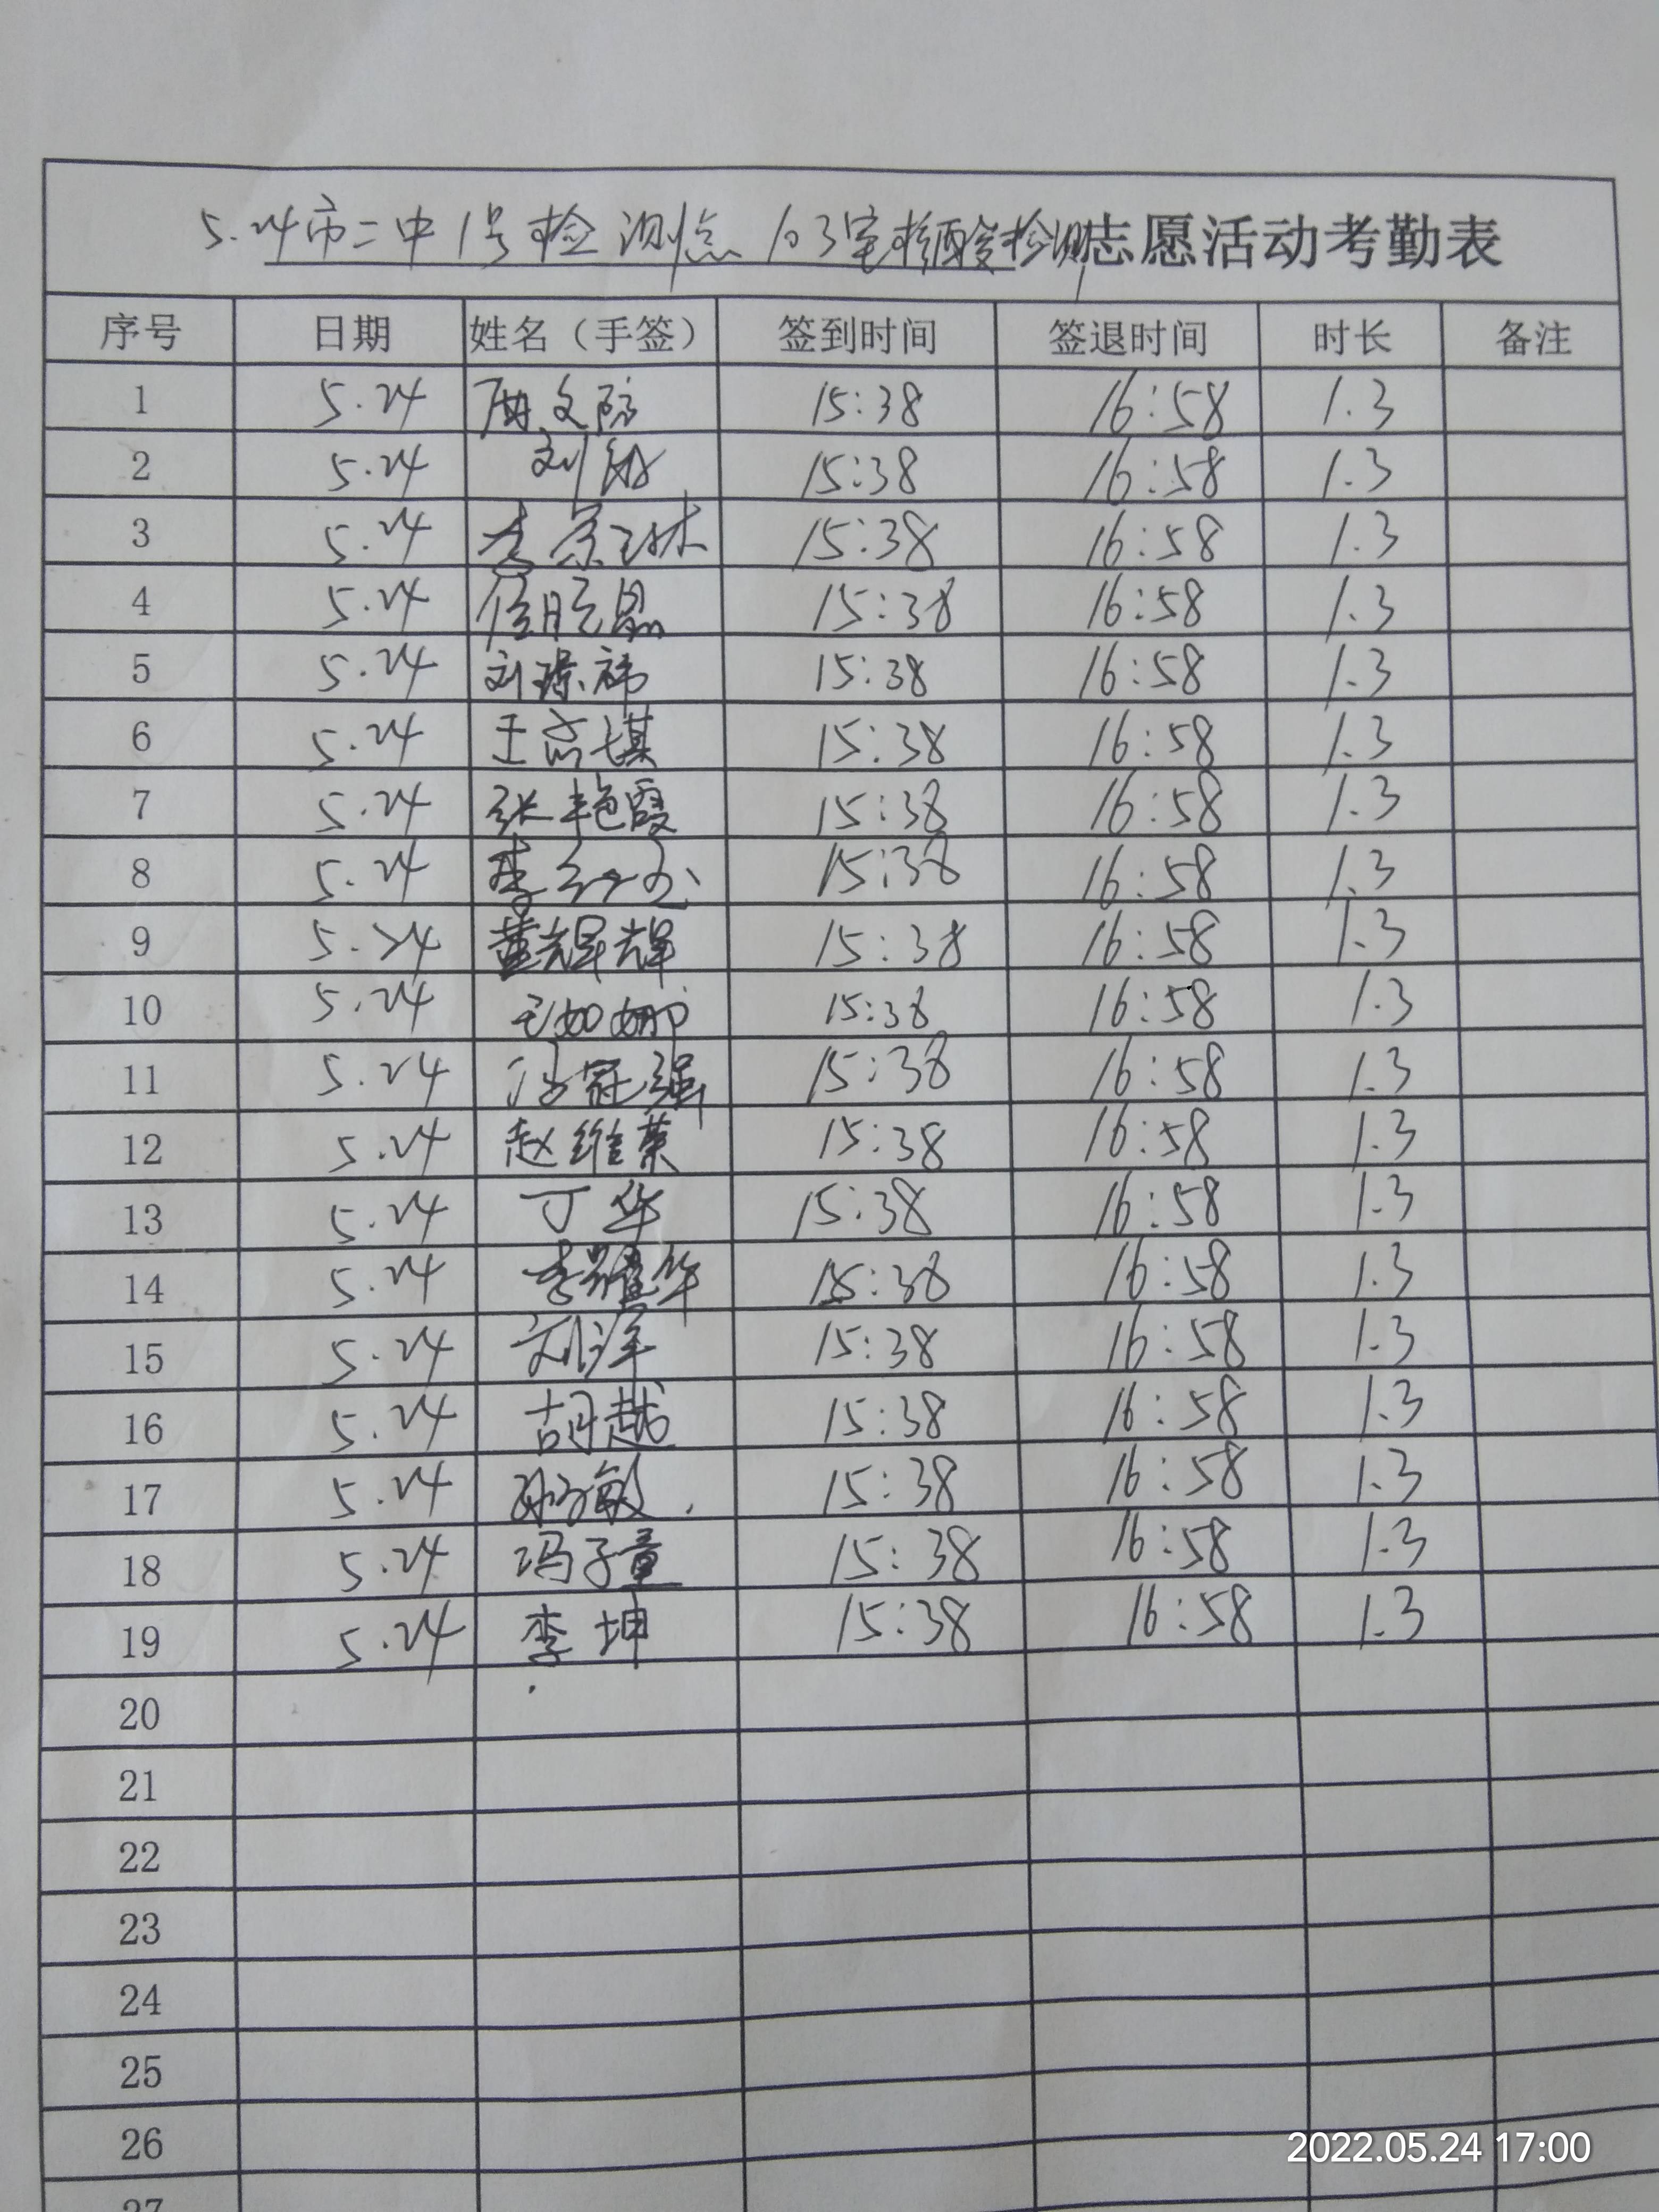 5.24市二中1号检测点103室核酸检测志愿活动考勤表
序号 日期 姓名（手签） 签到时间 签退时间 时长 备注
1 5.24 15:38 16:58 1.3
2 5.24 刘 15:38 16:58 1.3
3 5.24 李景琳 15:38 16:58 1.3
4 5.24 15:38 16:58 1.3
5 5.24 刘璟祎 15:38 16:58 1.3
6 5.24 王 15:38 16:58 1.3
7 5.24 张艳霞 15:38 16:58 1.3
8 5.24 李 15:38 16:58 1.3
9 5.24 董辉辉 15:38 16:58 1.3
10 5.24 娜 15:38 16:58 1.3
11 5.24 冠强 15:38 16:58 1.3
12 5.24 赵维荣 15:38 16:58 1.3
13 5.24 丁华 15:38 16:58 1.3
14 5.24 李耀华 15:38 16:58 1.3
15 5.24 刘洋 15:38 16:58 1.3
16 5.24 胡越 15:38 16:58 1.3
17 5.24 敏 15:38 16:58 1.3
18 5.24 冯子童 15:38 16:58 1.3
19 5.24 李坤 15:38 16:58 1.3
20
21
22
23
24
25
26
27
2022.05.24 17:00